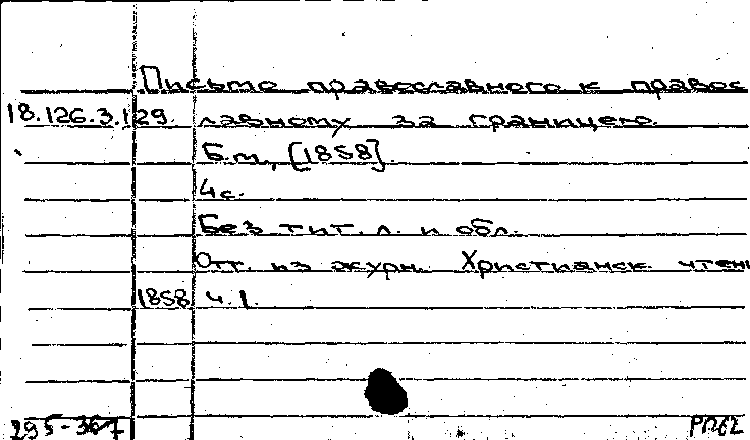 Письмо православного к правос
18.126.3.129. лавному за границею.
Б.м., [1858].
4с.
Без тит. л. и обл.
Отт. из журн. Христианск. чтен
1858 ч. 1.
295-367